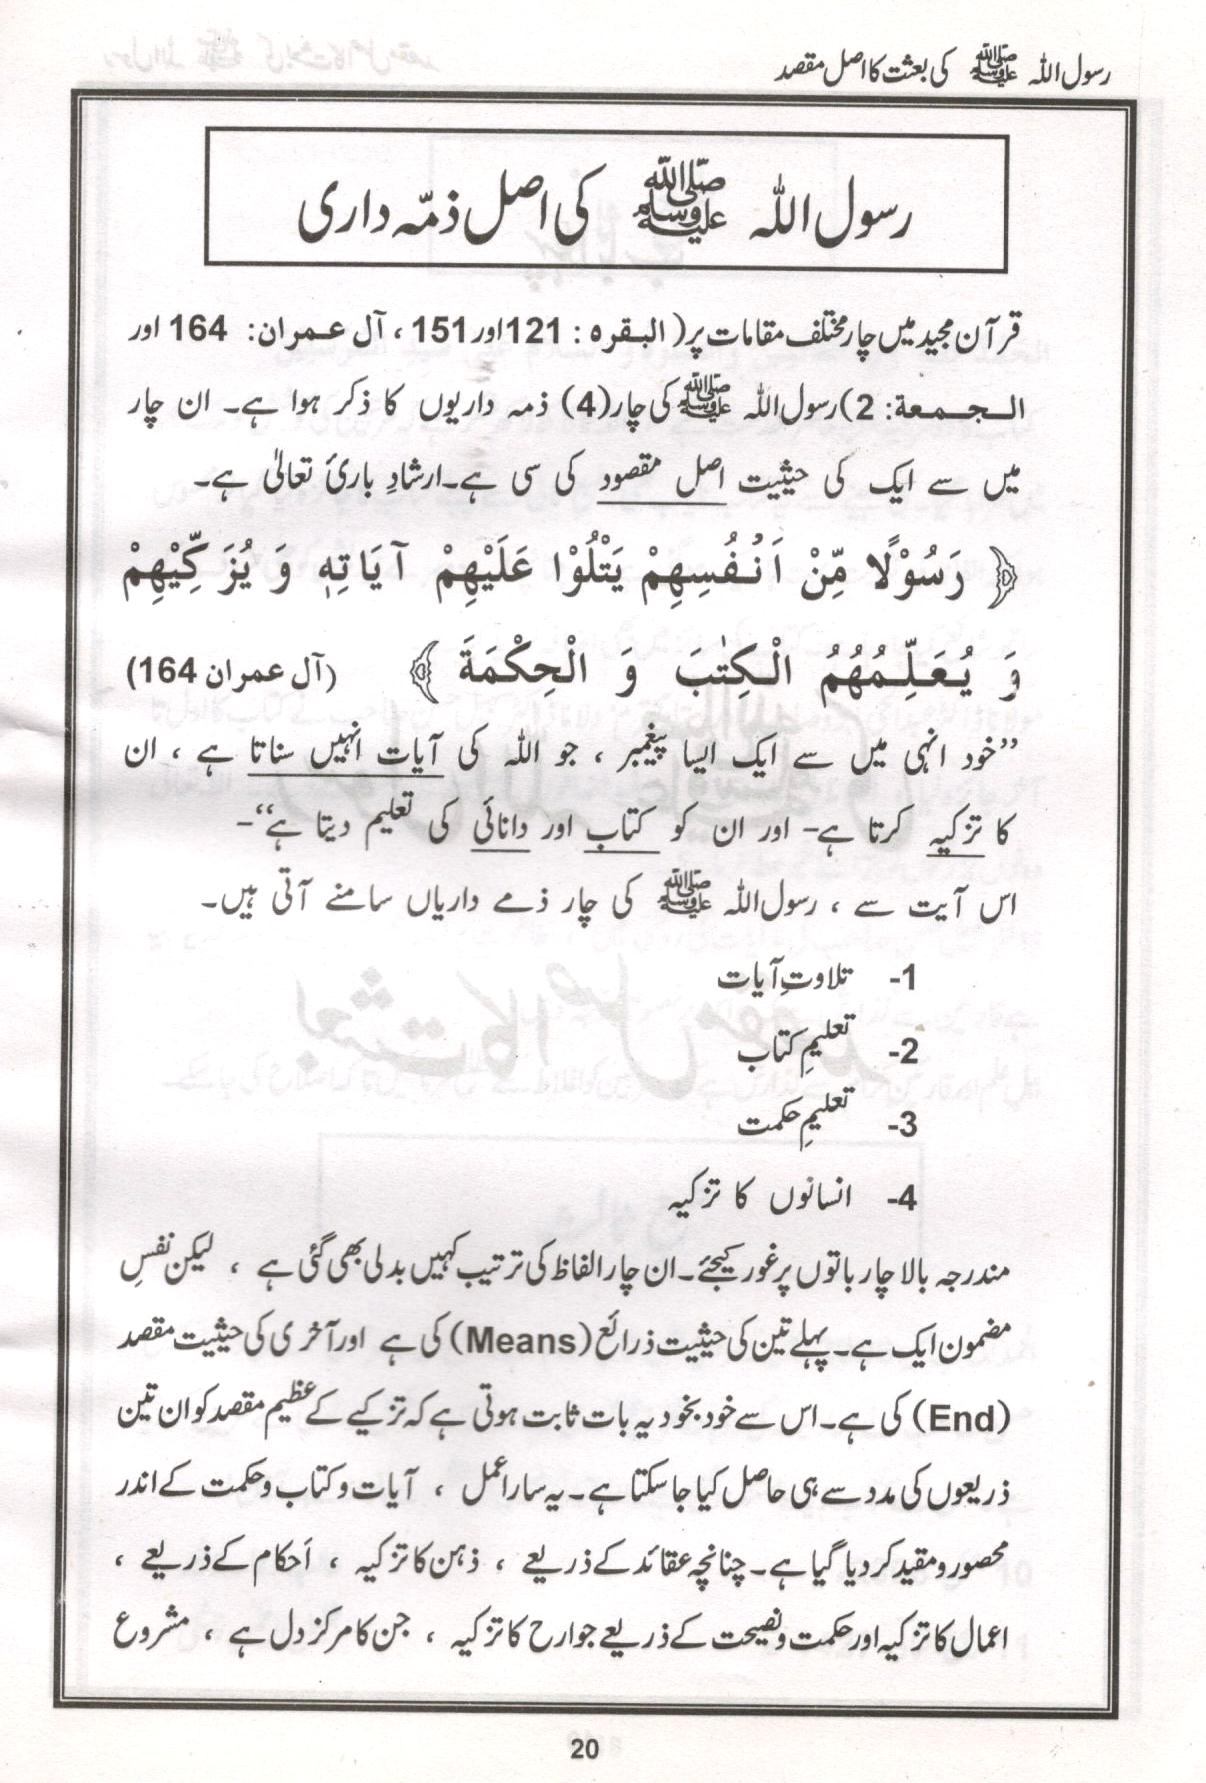 رسول اللہ ﷺ کی بعثت کا اصل مقصد
رسول اللہ ﷺ کی اصل ذمّہ داری
قرآن مجید میں چار مختلف مقامات پر( البقرہ : 121 اور 151 ، آل عمران: 164 اور
الجمعة: 2) رسول اللہ ﷺ کی چار (4) ذمہ داریوں کا ذکر ہوا ہے۔ ان چار
میں سے ایک کی حیثیت اصل مقصود کی سی ہے۔ ارشادِ باریٔ تعالیٰ ہے۔
﴿ رَسُوْلًا مِّنْ اَنْفُسِهِمْ يَتْلُوْا عَلَيْهِمْ آيَاتِهٖ وَ يُزَكِّيْهِمْ
وَ يُعَلِّمُهُمُ الْكِتٰبَ وَ الْحِكْمَةَ ﴾ (آل عمران 164)
”خود انہی میں سے ایک ایسا پیغمبر ، جو اللہ کی آیات انہیں سناتا ہے ، ان
کا تزکیہ کرتا ہے- اور ان کو کتاب اور دانائی کی تعلیم دیتا ہے“-
اس آیت سے ، رسول اللہ ﷺ کی چار ذمے داریاں سامنے آتی ہیں۔
1- تلاوتِ آیات
2- تعلیمِ کتاب
3- تعلیمِ حکمت
4- انسانوں کا تزکیہ
مندرجہ بالا چار باتوں پر غور کیجئے۔ ان چار الفاظ کی ترتیب کہیں بدلی بھی گئی ہے ، لیکن نفسِ
مضمون ایک ہے۔ پہلے تین کی حیثیت ذرائع (Means) کی ہے اور آخری کی حیثیت مقصد
(End) کی ہے۔ اس سے خود بخود یہ بات ثابت ہوتی ہے کہ تزکیے کے عظیم مقصد کو ان تین
ذریعوں کی مدد سے ہی حاصل کیا جا سکتا ہے۔ یہ سارا عمل ، آیات و کتاب و حکمت کے اندر
محصور و مقید کر دیا گیا ہے۔ چنانچہ عقائد کے ذریعے ، ذہن کا تزکیہ ، اَحکام کے ذریعے ،
اعمال کا تزکیہ اور حکمت و نصیحت کے ذریعے جوارح کا تزکیہ ، جن کا مرکز دل ہے ، مشروع
20